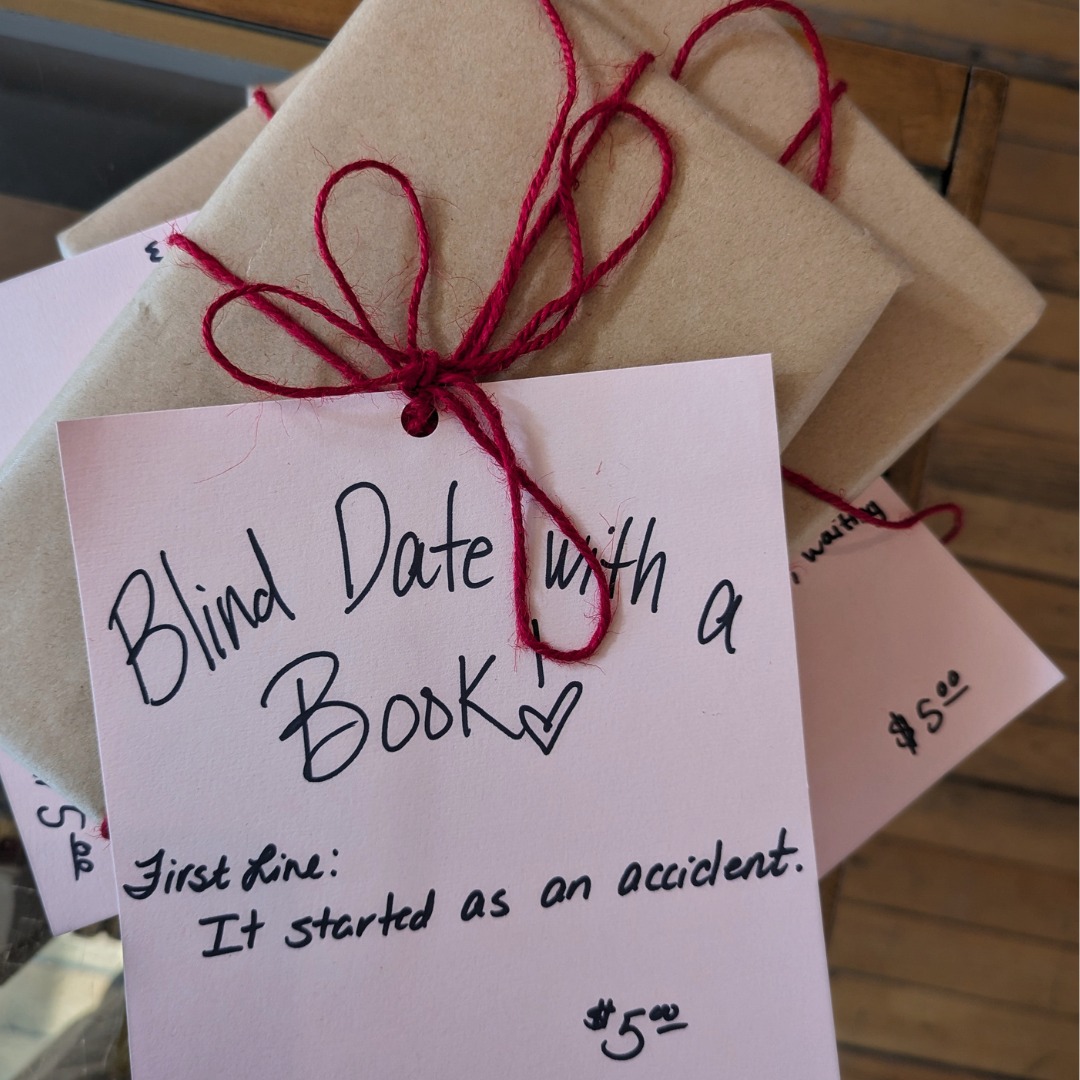 Blind Date with a
Book!
First Line:
It started as an accident.
$5.00
waiting
$5.00
5.00